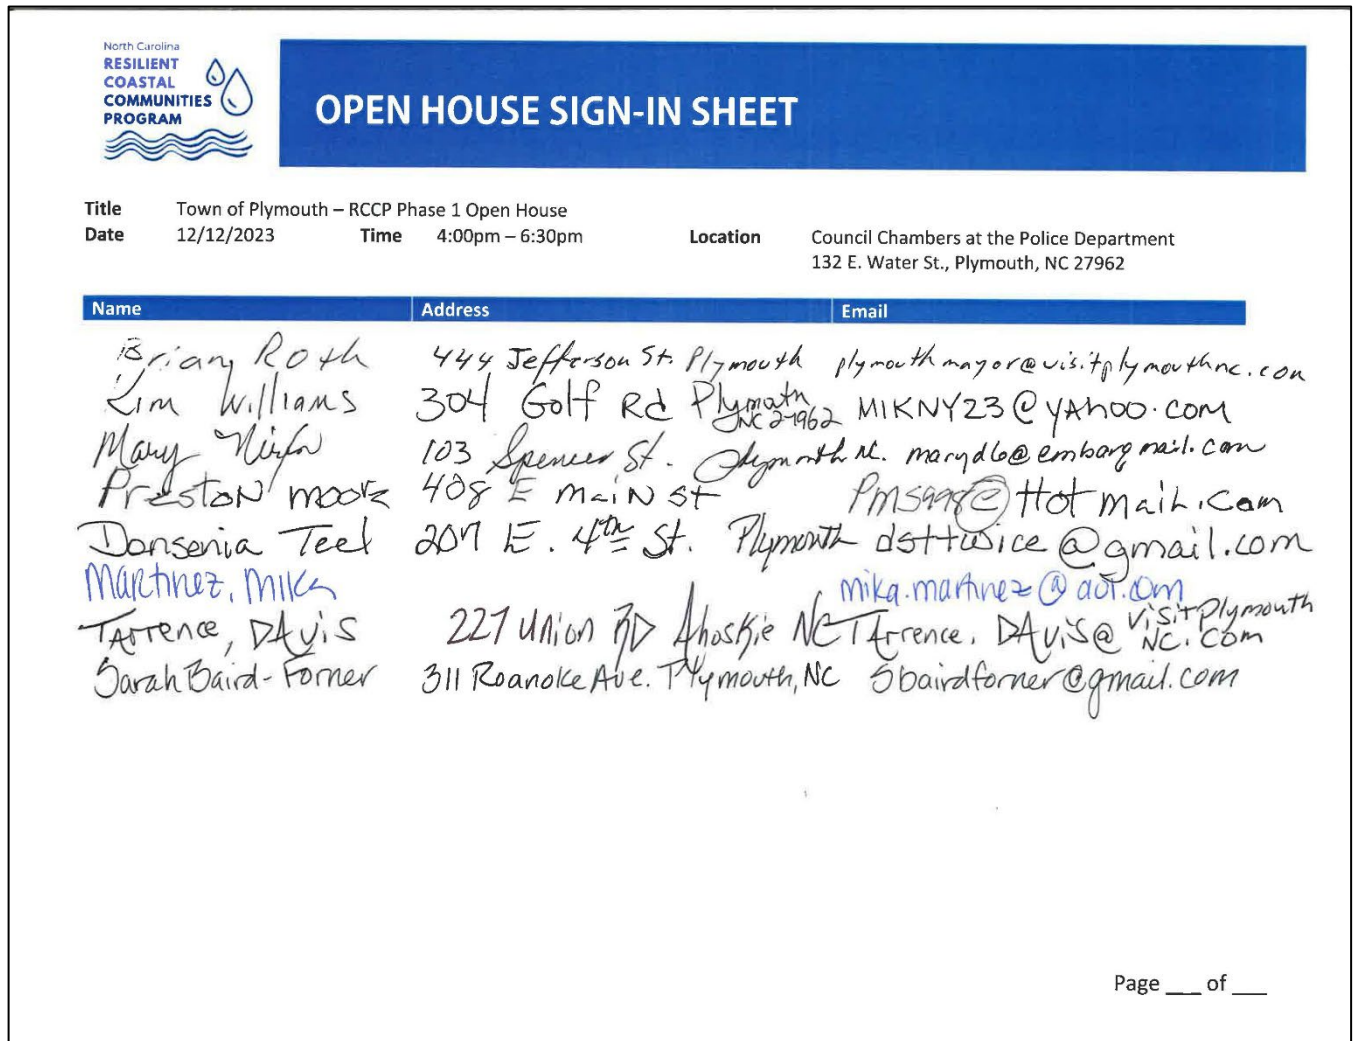 North Carolina
RESILIENT
COASTAL
COMMUNITIES
PROGRAM
OPEN HOUSE SIGN-IN SHEET
Title Town of Plymouth – RCCP Phase 1 Open House
Date 12/12/2023 Time 4:00pm – 6:30pm Location Council Chambers at the Police Department
132 E. Water St., Plymouth, NC 27962
Name Address Email
Brian Roth 444 Jefferson St. Plymouth plymouthmayor@visitplymouthnc.com
Kim Williams 304 Golf Rd Plymouth NC 27962 MIKNY23@YAhoo.com
Mary 103 Spencer St. Plymouth NC. maryd60@embarqmail.com
Preston moore 408 E maiN st Pm5998@Hotmail.com
Donsenia Teel 207 E. 4th St. Plymouth dsttwice@gmail.com
Martinez, Mika mika.martinez@aol.com
TArrence, DAvis 227 Union RD Ahoskie NC TArrence.DAvis@visitPlymouthNC.com
Sarah Baird-Forner 311 Roanoke Ave. Plymouth, NC Sbairdforner@gmail.com
Page ___ of ___